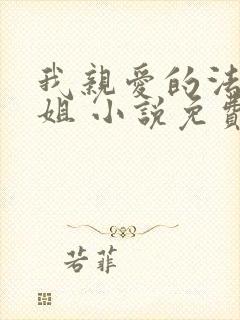 我親愛的法
姐 小說免費
若菲